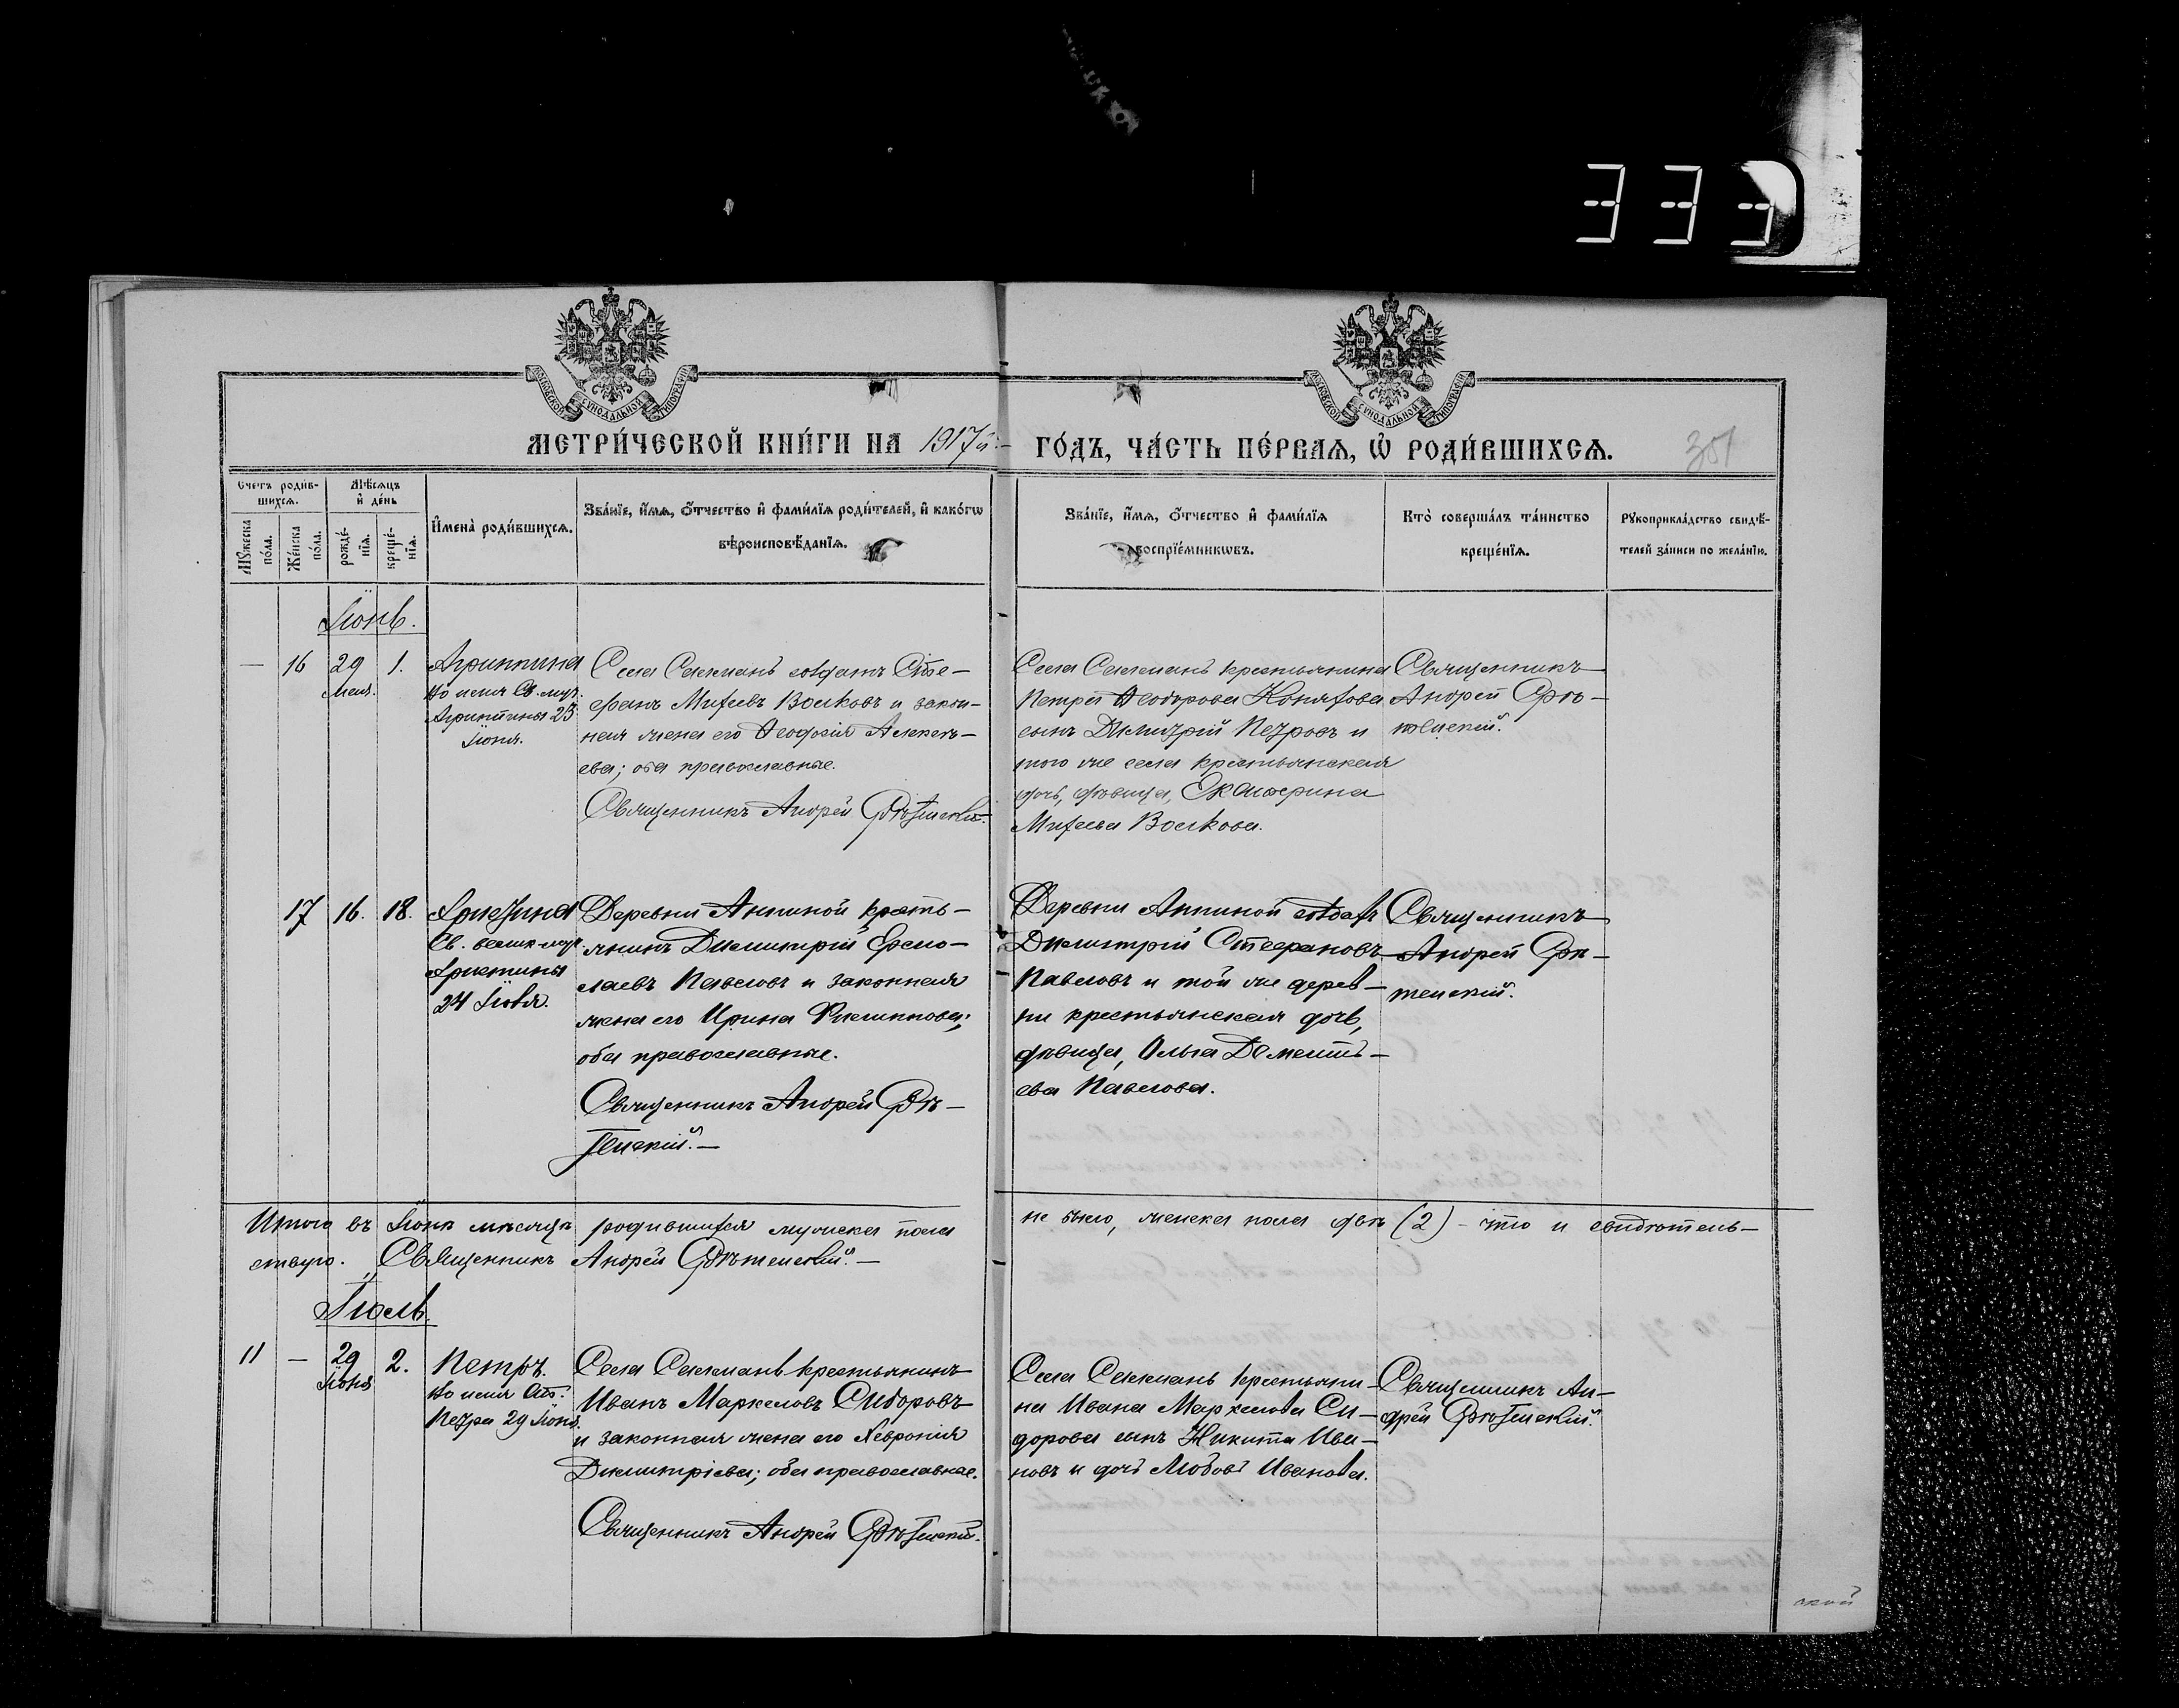 333
МОСКОВСКОЙ СѴНОДАЛЬНОЙ ТИПОГРАФІИ
МОСКОВСКОЙ СѴНОДАЛЬНОЙ ТИПОГРАФІИ
МЕТРИ́ЧЕСКОЙ КНИ́ГИ НА 1917й. ГО́ДЪ, ЧА́СТЬ ПЕ́РВАѦ, Ѡ҆ РОДИ́ВШИХСѦ.
301
Счетъ роди́вшихсѧ.
Мѣ́сѧцъ и҆ де́нь
Мꙋ́жеска по́ла.
Же́нска по́ла.
рожде́нїѧ.
креще́нїѧ.
И҆мена̀ роди́вшихсѧ.
Зва́нїе, и҆́мѧ, ѻ҆́тчество и҆ фами́лїѧ роди́телей, и҆ како́гѡ
вѣроисповѣ́данїѧ.
Зва́нїе, и҆́мѧ, ѻ҆́тчество и҆ фами́лїѧ
воспрїе́мникѡвъ.
Кто̀ соверша́лъ та́инство
креще́нїѧ.
Рꙋкоприкла́дство свидѣ́-
телей за́писи по жела́нїю.
Іюнь.
— 16 29 Мая. 1.
Агриппина
во имя Св. муч.
Агрипины 23
Іюня.
Села Сакмань солдатъ Сте-
фанъ Михеевъ Волковъ и закон-
ная жена его Ѳеодосія Алексѣ-
ева; оба православные.
Священникъ Андрей
Села Сакмань крестьянина
Петра Ѳеодорова сынъ Димитрій Петровъ и
того же села крестьянская
дочь, дѣвица, Екатерина
Михеева Волкова.
Священникъ
Андрей
17 16. 18.
Христина
Св. велик-муч.
Христины
24 Іюля.
Деревни Аниной кресть-
янинъ Димитрій
Павловъ и законная
жена его Ирина Филиппова;
оба православные.
Священникъ Андрей
Деревни Аниной солдатъ
Димитрій Стефановъ
Павловъ и той же дерев-
ни крестьянская дочь,
дѣвица, Ольга Дементь-
ева Павлова.
Священникъ
Андрей
Итого въ Іюнѣ мѣсяцѣ родившихся мужска пола не было, женска пола двѣ (2) - что и свидѣтель-
ствую. Священникъ Андрей
Іюль.
11 — 29 Іюня 2.
Петръ.
во имя Ап.
Петра 29 Іюня.
Села Сакмань крестьянинъ
Иванъ Маркеловъ Сидоровъ
и законная жена его Хевронія
Димитріева; оба православные.
Священникъ Андрей
Села Сакмань крестьяни-
на Ивана Маркелова Си-
дорова сынъ Никита Ива-
новъ и дочь Любовь Иванова.
Священникъ Ан-
дрей